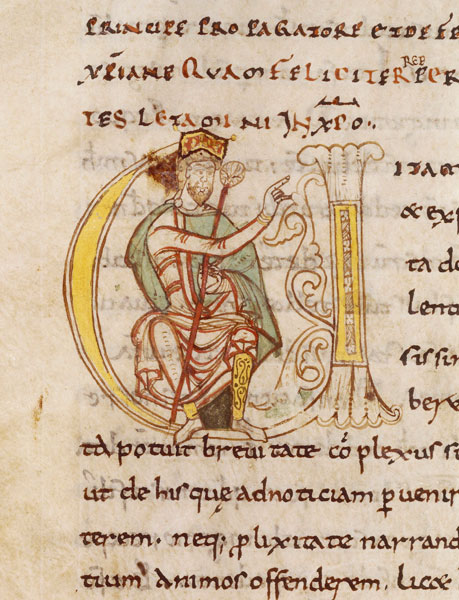 PRINCIPE PROPAGATORE ET DE FE
XPIANE QUAM FELICITER REP PER
TES LETAMINI IN XPO.
ITAM
& EXP
ta do
lenti
sissim
bere
ta potuit brevitate cō plexus s
ut de his quę ad noticiam p̱uenir
terem. neq; p̱lixitate narrand
tium animos offenderem.